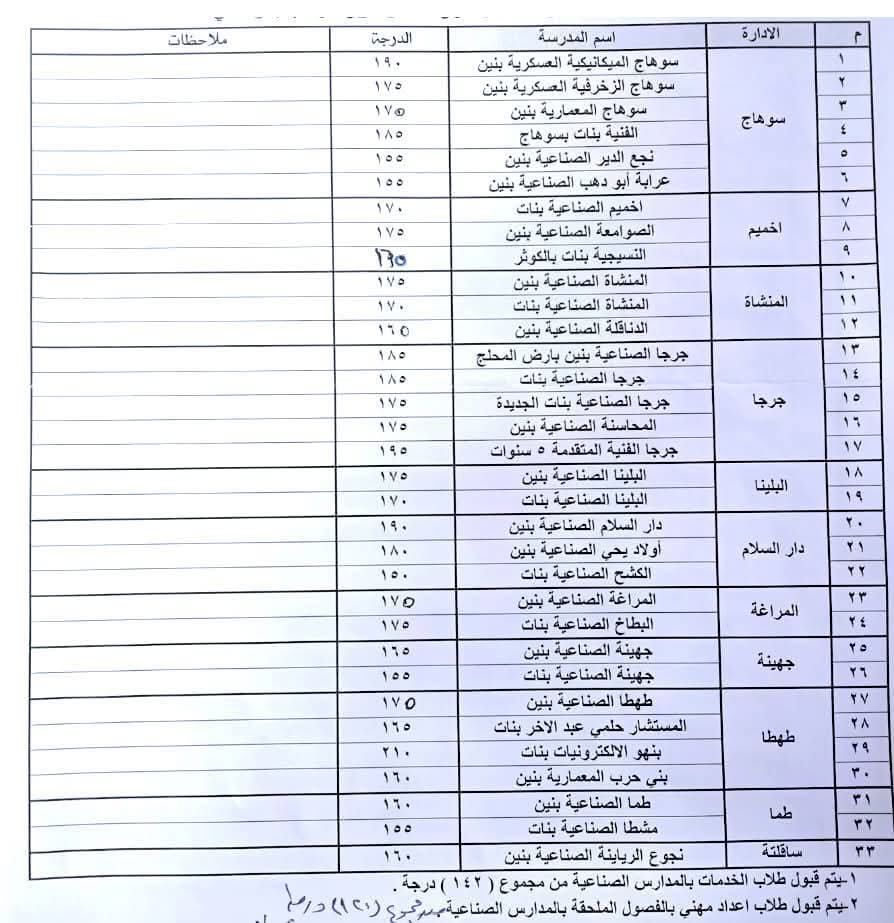 م الادارة اسم المدرسة الدرجة ملاحظات
١ سوهاج سوهاج الميكانيكية العسكرية بنين ١٩٠
٢ سوهاج الزخرفية العسكرية بنين ١٧٥
٣ سوهاج المعمارية بنين ١٧٥
٤ الفنية بنات بسوهاج ١٨٥
٥ نجع الدير الصناعية بنين ١٥٥
٦ عرابة أبو دهب الصناعية بنين ١٥٥
٧ اخميم اخميم الصناعية بنات ١٧٠
٨ الصوامعة الصناعية بنين ١٧٥
٩ النسيجية بنات بالكوثر
١٠ المنشاة المنشاة الصناعية بنين ١٧٥
١١ المنشاة الصناعية بنات ١٧٠
١٢ الدناقلة الصناعية بنين ١٦٥
١٣ جرجا جرجا الصناعية بنين بارض المحلج ١٨٥
١٤ جرجا الصناعية بنات ١٨٥
١٥ جرجا الصناعية بنات الجديدة ١٧٥
١٦ المحاسنة الصناعية بنين ١٧٥
١٧ جرجا الفنية المتقدمة ٥ سنوات ١٩٥
١٨ البلينا البلينا الصناعية بنين ١٧٥
١٩ البلينا الصناعية بنات ١٧٠
٢٠ دار السلام دار السلام الصناعية بنين ١٩٠
٢١ أولاد يحي الصناعية بنين ١٨٠
٢٢ الكشح الصناعية بنات ١٥٠
٢٣ المراغة المراغة الصناعية بنين ١٧٥
٢٤ البطاخ الصناعية بنات ١٧٥
٢٥ جهينة جهينة الصناعية بنين ١٦٥
٢٦ جهينة الصناعية بنات ١٥٥
٢٧ طهطا طهطا الصناعية بنين ١٧٥
٢٨ المستشار حلمي عبد الاخر بنات ١٦٥
٢٩ بنهو الالكترونيات بنات ٢١٠
٣٠ بني حرب المعمارية بنين ١٦٠
٣١ طما طما الصناعية بنين ١٦٠
٣٢ مشطا الصناعية بنات ١٥٥
٣٣ ساقلتة نجوع الرياينة الصناعية بنين ١٦٠
١-يتم قبول طلاب الخدمات بالمدارس الصناعية من مجموع ( ١٤٢ ) درجة .
٢-يتم قبول طلاب اعداد مهني بالفصول الملحقة بالمدارس الصناعية